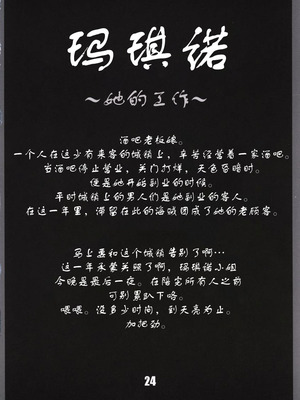 玛琪诺
～她的工作～
酒吧老板娘。
一个人在这少有来客的城镇上，辛苦经营着一家酒吧。
当酒吧停止营业，关门打烊，天色昏暗时，
便是她开始副业的时候。
平时城镇上的男人们是她副业的客人。
在这一年里，滞留在此的海贼团成了她的老顾客。
马上要和这个城镇告别了啊…
这一年承蒙关照了啊，玛琪诺小姐
今晚是最后一夜。在陪完所有人之前
可别累趴下咯。
喂喂。没多少时间，到天亮为止。
加把劲。
24